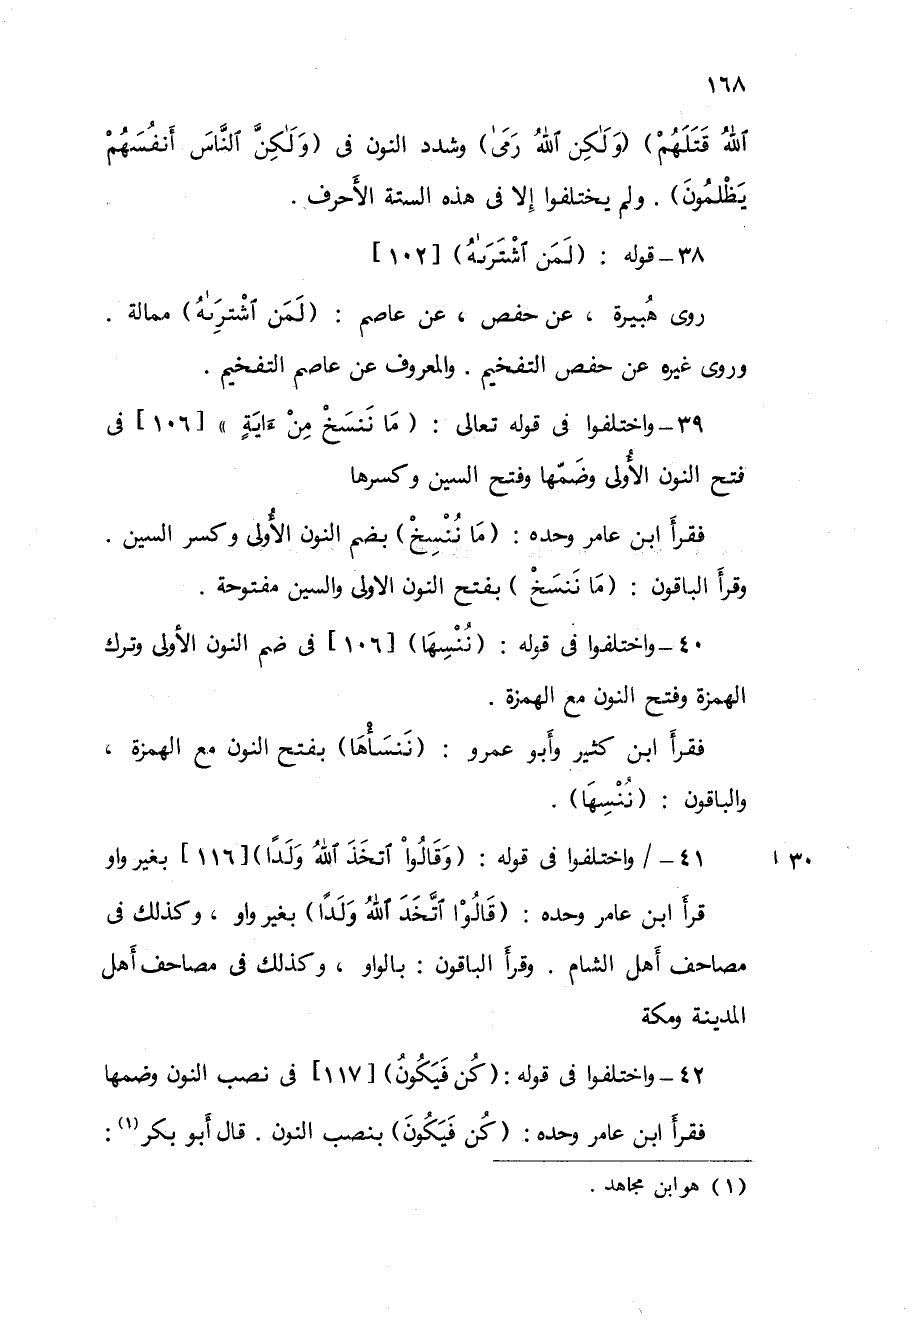 ١٦٨
ٱللَّهُ قَتَلَهُمْ) (وَلَٰكِن ٱللَّهُ رَمَىٰ) وشدد النون فى (وَلَٰكِنَّ ٱلنَّاسَ أَنفُسَهُمْ
يَظْلِمُونَ) . ولم يختلفوا إلا فى هذه الستة الأَحرف .
٣٨ – قوله : (لَمَن ٱشْتَرَىٰهُ) [١٠٢]
روى هُبيرة ، عن حفص ، عن عاصم : (لَمَن ٱشْترِىٰهُ) ممالة .
وروى غيره عن حفص التفخيم . والمعروف عن عاصم التفخيم .
٣٩ – واختلفوا فى قوله تعالى : ( مَا نَنسَخْ مِنْ ءَايَةٍ » [١٠٦] فى
فتح النون الأُولى وضَمّها وفتح السين وكسرها
فقرأَ ابن عامر وحده : (مَا نُنْسِخْ) بضم النون الأُولى وكسر السين .
وقرأَ الباقون : (مَا نَنسَخْ ) بفتح النون الاولى والسين مفتوحة .
٤٠ – واختلفوا فى قوله : (نُنْسِهَا) [١٠٦] فى ضم النون الأولى وترك
الهمزة وفتح النون مع الهمزة .
فقرأَ ابن كثير وأَبو عمرو : (نَنسَأْهَا) بفتح النون مع الهمزة ،
والباقون : (نُنْسِهَا) .
٤١ – / واختلفوا فى قوله : (وَقَالُواْ ٱتخَذَ ٱللَّهُ وَلَدًا)[١١٦] بغير واو ٣٠ ا
قرأَ ابن عامر وحده : (قَالُوْا ٱتَّخَذَ ٱللَّهُ وَلَدًا) بغير واو ، وكذلك فى
مصاحف أَهل الشام . وقرأَ الباقون : بالواو ، وكذلك فى مصاحف أَهل
المدينة ومكة
٤٢ – واختلفوا فى قوله :(كُن فَيَكُونُ) [١١٧] فى نصب النون وضمها
فقرأَ ابن عامر وحده : (كُن فَيَكُونَ) بنصب النون . قال أَبو بكر (١) :
(١) هو ابن مجاهد .